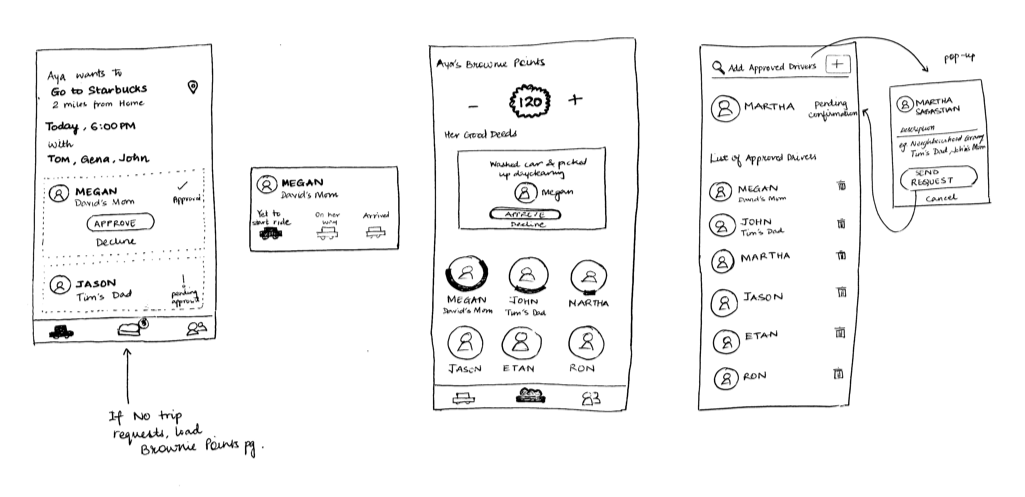 Aya wants to
Go to Starbucks
2 miles from Home
Today, 6:00 PM
with
Tom, Gena, John
MEGAN
David's Mom
Approved
APPROVE
Decline
JASON
Tim's Dad
pending
approval
If No trip
requests, load
Brownie Points pg.
MEGAN
David's Mom
Yet to
start ride
On her
way
Arrived
Aya's Brownie Points
-
120
+
Her Good Deeds
Washed car & picked
up drycleaning
Megan
APPROVE
Decline
MEGAN
David's Mom
JOHN
Tim's Dad
MARTHA
JASON
ETAN
RON
Add Approved Drivers
+
MARTHA
pending
confirmation
List of Approved Drivers
MEGAN
David's Mom
JOHN
Tim's Dad
MARTHA
JASON
ETAN
RON
pop-up
MARTHA
SABASTIAN
Description
eg. Neighbourhood Granny
Tim's Dad, John's Mom
SEND
REQUEST
Cancel